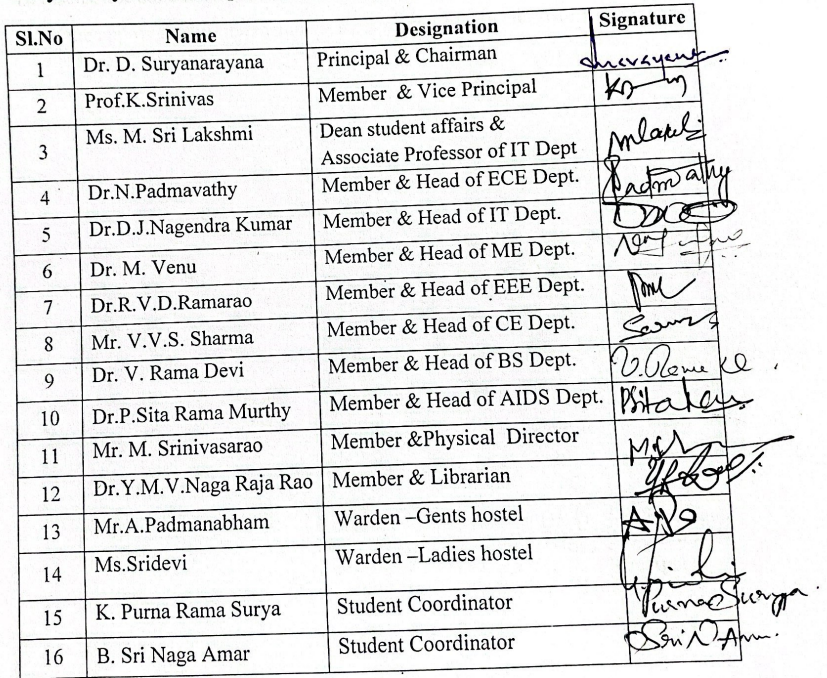 Sl.No Name Designation Signature
1 Dr. D. Suryanarayana Principal & Chairman
2 Prof.K.Srinivas Member & Vice Principal
3 Ms. M. Sri Lakshmi Dean student affairs &
Associate Professor of IT Dept
4 Dr.N.Padmavathy Member & Head of ECE Dept. Padmavathy
5 Dr.D.J.Nagendra Kumar Member & Head of IT Dept.
6 Dr. M. Venu Member & Head of ME Dept.
7 Dr.R.V.D.Ramarao Member & Head of EEE Dept.
8 Mr. V.V.S. Sharma Member & Head of CE Dept.
9 Dr. V. Rama Devi Member & Head of BS Dept.
10 Dr.P.Sita Rama Murthy Member & Head of AIDS Dept.
11 Mr. M. Srinivasarao Member &Physical Director
12 Dr.Y.M.V.Naga Raja Rao Member & Librarian
13 Mr.A.Padmanabham Warden –Gents hostel
14 Ms.Sridevi Warden –Ladies hostel
15 K. Purna Rama Surya Student Coordinator Purna Surya
16 B. Sri Naga Amar Student Coordinator